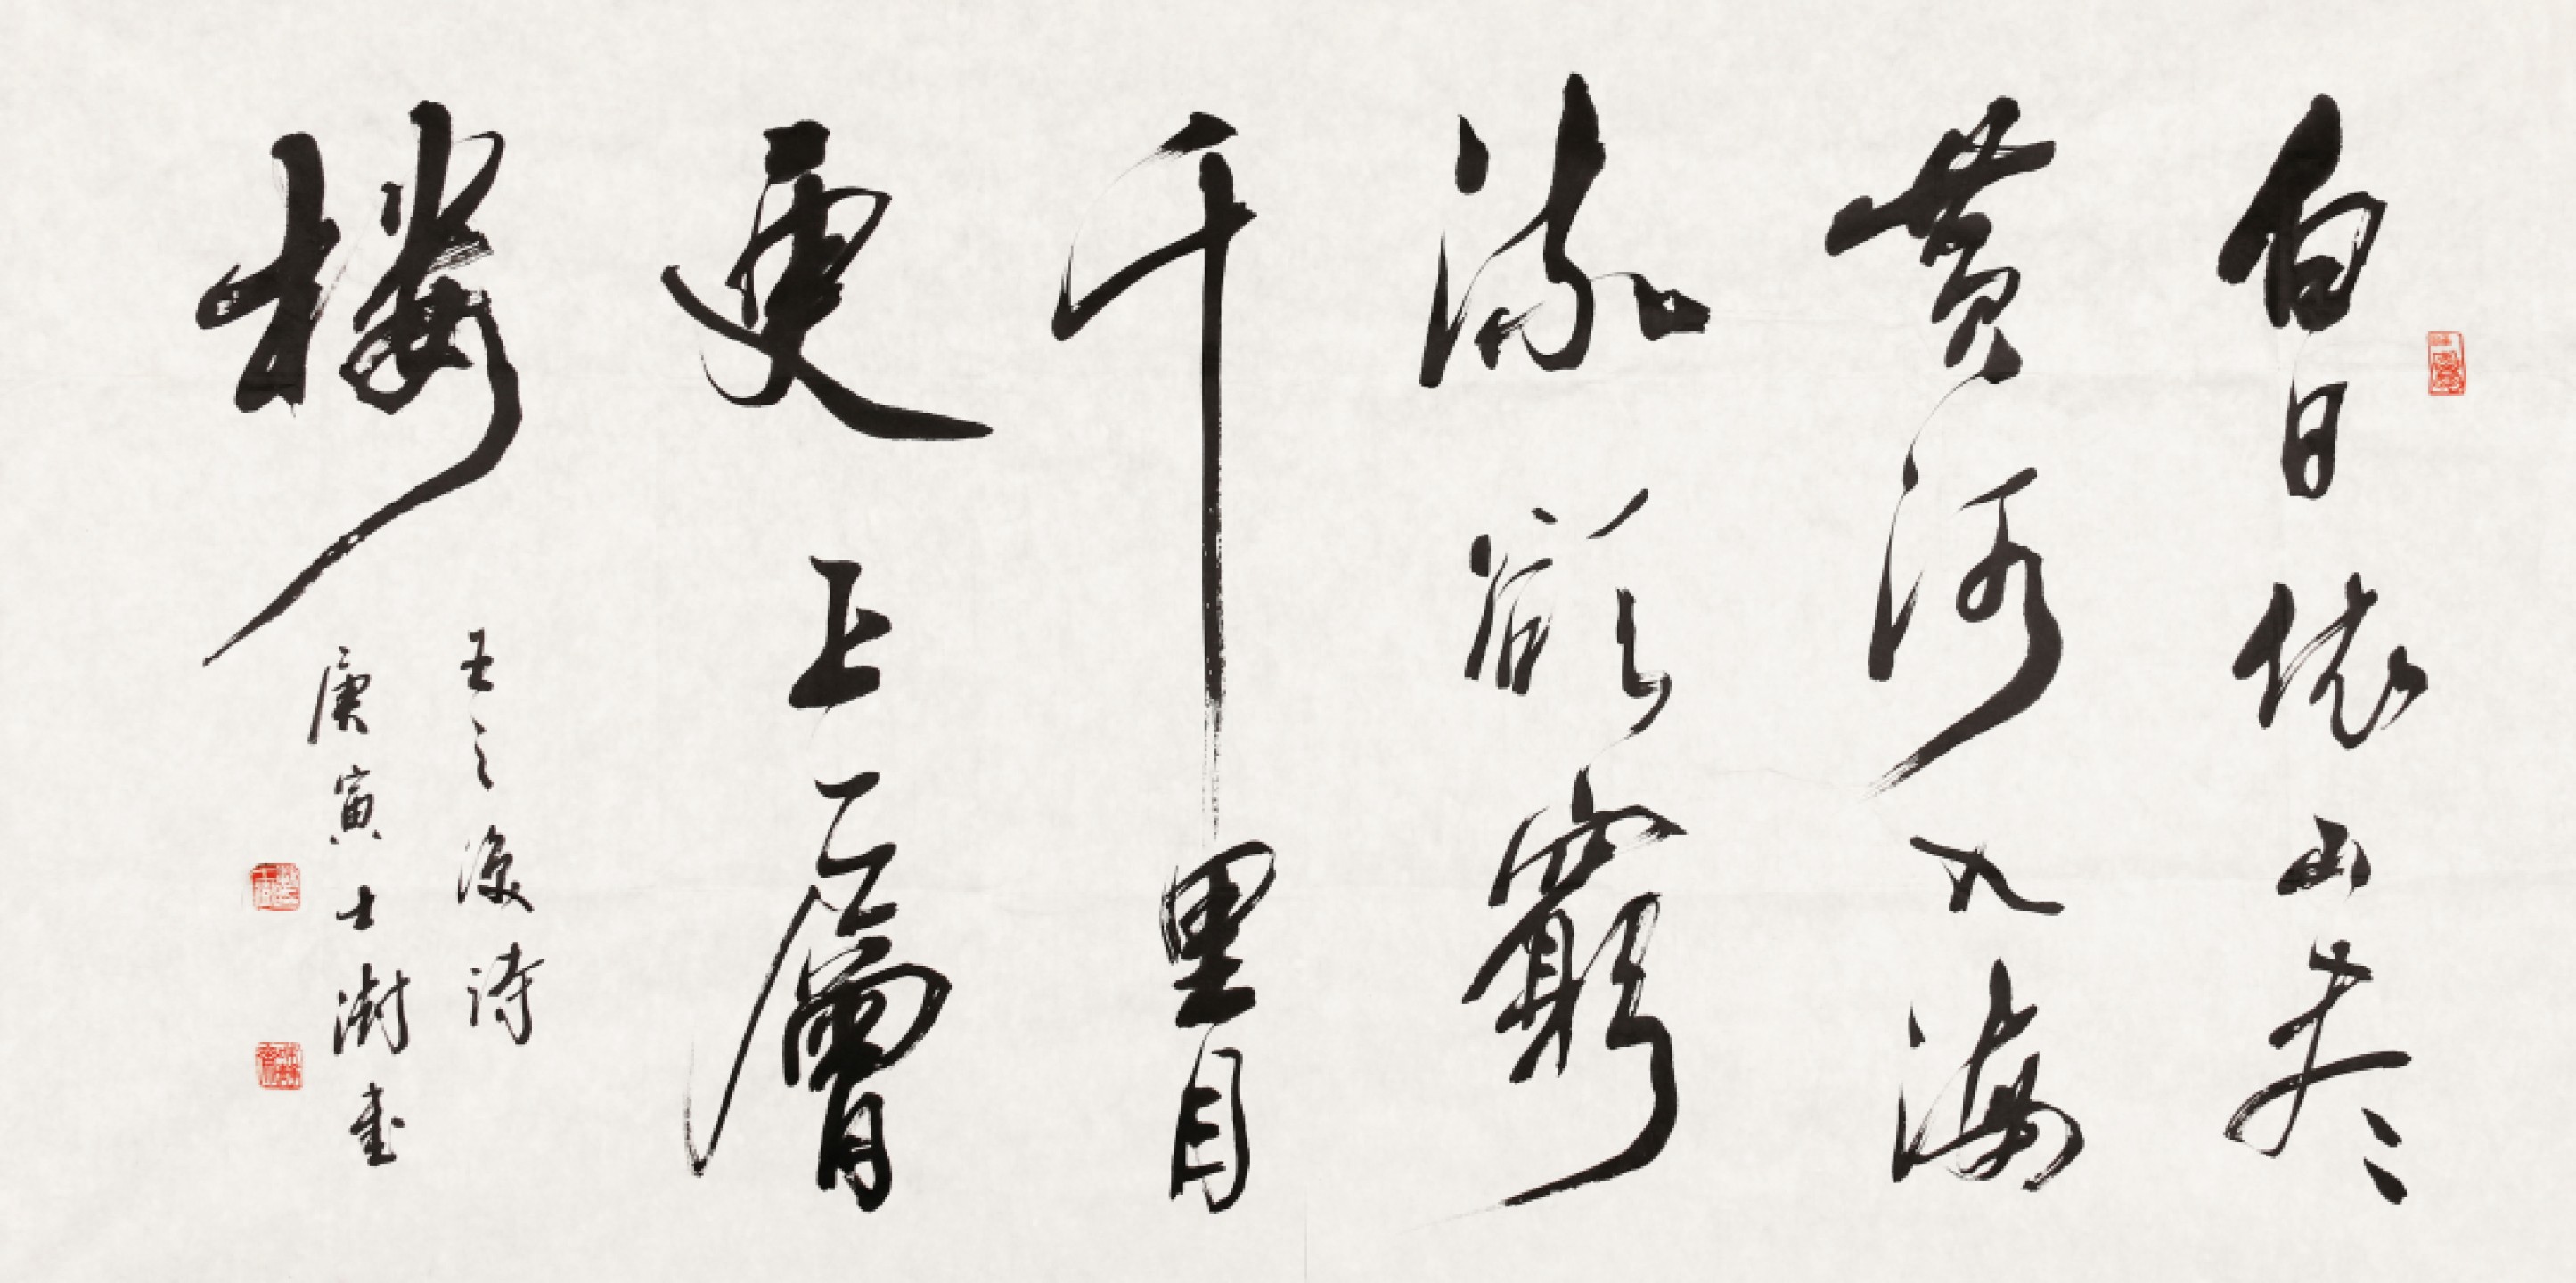 白日依山尽
黄河入海
流欲穷
千里目
更上一层
楼
王之涣诗
庚寅士澍书